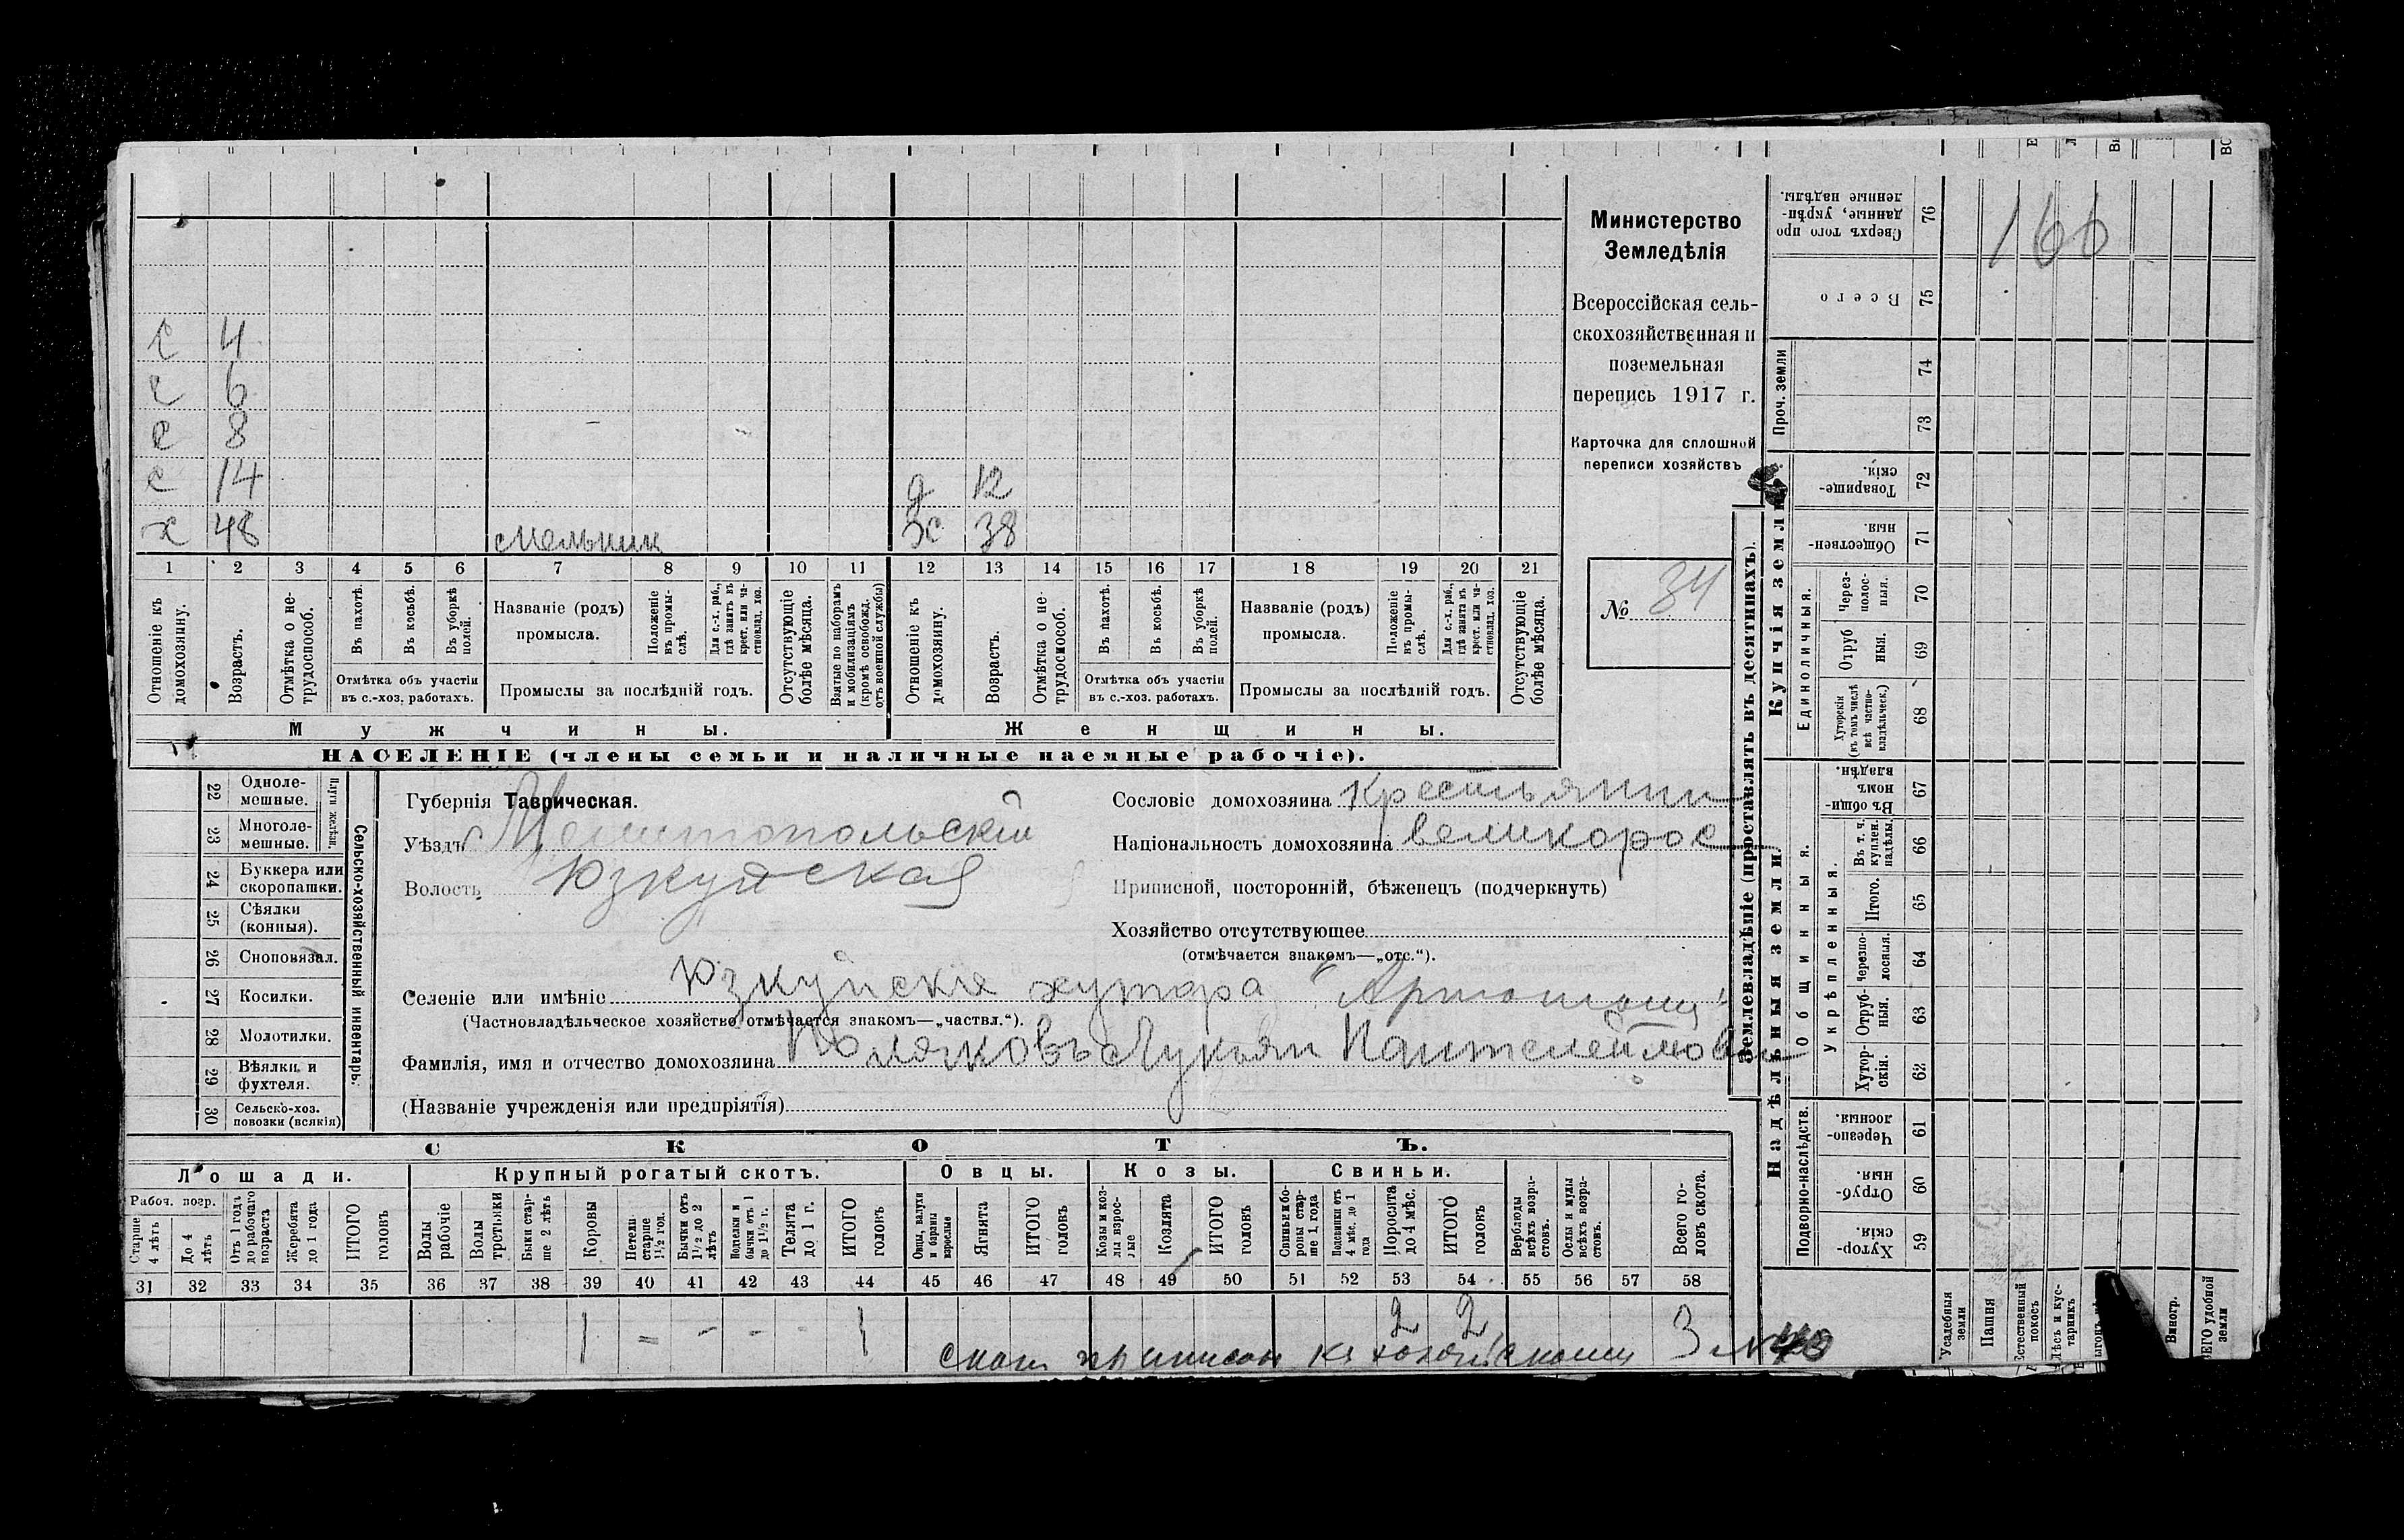 166
Министерство
Земледѣлія
Всероссійская сель-
скохозяйственная и
поземельная
перепись 1917 г.
Карточка для сплошной
переписи хозяйствъ
№ 34
с 4
с 6
с 8
с 14 д 12
х 48 мельник ж 38
1 2 3 4 5 6 7 8 9 10 11 12 13 14 15 16 17 18 19 20 21
Отношеніе къ домохозяину.
Возрастъ.
Отмѣтка о не-трудоспособ.
Въ пахотѣ.
Въ косьбѣ.
Въ уборкѣ полей.
Отмѣтка объ участіи
въ с.-хоз. работахъ.
Названіе (родъ)
промысла.
Положеніе въ промы-слѣ.
Для с.-х. раб., гдѣ занятъ въ крест. или ча-стновлад. хоз.
Промыслы за послѣдній годъ.
Отсутствующіе болѣе мѣсяца.
Взятые по наборамъ и мобилизаціямъ (кромѣ освобожд. отъ военной службы)
Отношеніе къ домохозяину.
Возрастъ.
Отмѣтка о не-трудоспособ.
Въ пахотѣ.
Въ косьбѣ.
Въ уборкѣ полей.
Отмѣтка объ участіи
въ с.-хоз. работахъ.
Названіе (родъ)
промысла.
Положеніе въ промы-слѣ.
Для с.-х. раб., гдѣ занята въ крест. или ча-стновлад. хоз.
Промыслы за послѣдній годъ.
Отсутствующіе болѣе мѣсяца.
Мужчины. Женщины.
НАСЕЛЕНІЕ (члены семьи и наличные наемные рабочіе).
Сельско-хозяйственный инвентарь.
Плуги желѣзн.
22 Одноле-мешные.
23 Многоле-мешные.
24 Буккера или скоропашки.
25 Сѣялки (конныя).
26 Сноповязал.
27 Косилки.
28 Молотилки.
29 Вѣялки и фухтеля.
30 Сельско-хоз. повозки (всякія)
Губернія Таврическая.
Уѣздъ Мелитопольскій
Волость Юзкуйская
Сословіе домохозяина Крестьянин
Національность домохозяина великорос
Приписной, посторонній, бѣженецъ (подчеркнуть)
Хозяйство отсутствующее
(отмѣчается знакомъ—„отс.“).
Селеніе или имѣніе Юзкуйскіе хутора
(Частновладѣльческое хозяйство отмѣчается знакомъ—„частвл.“).
Фамилія, имя и отчество домохозяина Поляковъ Лукьян Пантелеймонов
(Названіе учрежденія или предпріятія)
СКОТЪ.
Лошади. Крупный рогатый скотъ. Овцы. Козы. Свиньи.
Рабоч. возр.
Старше 4 лѣтъ
До 4 лѣтъ
Отъ 1 года до рабочаго возраста
Жеребята до 1 года
ИТОГО головъ
Волы рабочіе
Волы третьяки
Быки стар-ше 2 лѣтъ
Коровы
Нетели старше 1½ год.
Бычки отъ 1½ до 2 лѣтъ
Подтелки и бычки отъ 1 до 1½ г.
Телята до 1 г.
ИТОГО головъ
Овцы, валухи и бараны взрослые
Ягнята
ИТОГО головъ
Козы и коз-лы взрос-лые
Козлята
ИТОГО головъ
Свиньи и бо-ровы стар-ше 1 года
Подсвинки отъ 4 мѣс. до 1 года
Поросята до 4 мѣс.
ИТОГО головъ
Верблюды всѣхъ возра-стовъ.
Ослы и мулы всѣхъ возра-стовъ.
Всего го-ловъ скота.
31 32 33 34 35 36 37 38 39 40 41 42 43 44 45 46 47 48 49 50 51 52 53 54 55 56 57 58
1 – – – – 1 2 2 3
скот приписан къ хозяйскому №
Землевладѣніе (проставлять въ десятинахъ).
Надѣльныя земли. Купчія земли
Подворно-наслѣдств.
Общинныя.
Укрѣпленныя.
Единоличныя.
Проч. земли
Хутор-скія. 59
Отруб-ныя 60
Черезпо-лосныя. 61
Хутор-скія. 62
Отруб-ныя. 63
Черезпо-лосныя. 64
Итого. 65
Въ т. ч. куплен. надѣлы. 66
Въ общин-номъ владѣн. 67
Хуторскія (въ томъ числѣ всѣ частно-владѣльческ.) 68
Отруб ныя. 69
Через-полос-ныя. 70
Обществен-ныя. 71
Товарище-скія. 72
73
74
Всего 75
Сверхъ того про данные, укрѣп-ленные надѣлы. 76
Усадебныя земли
Пашня
Естественный покосъ
Лѣсъ и кус-тарникъ
Виногр.
ВСЕГО удобной земли